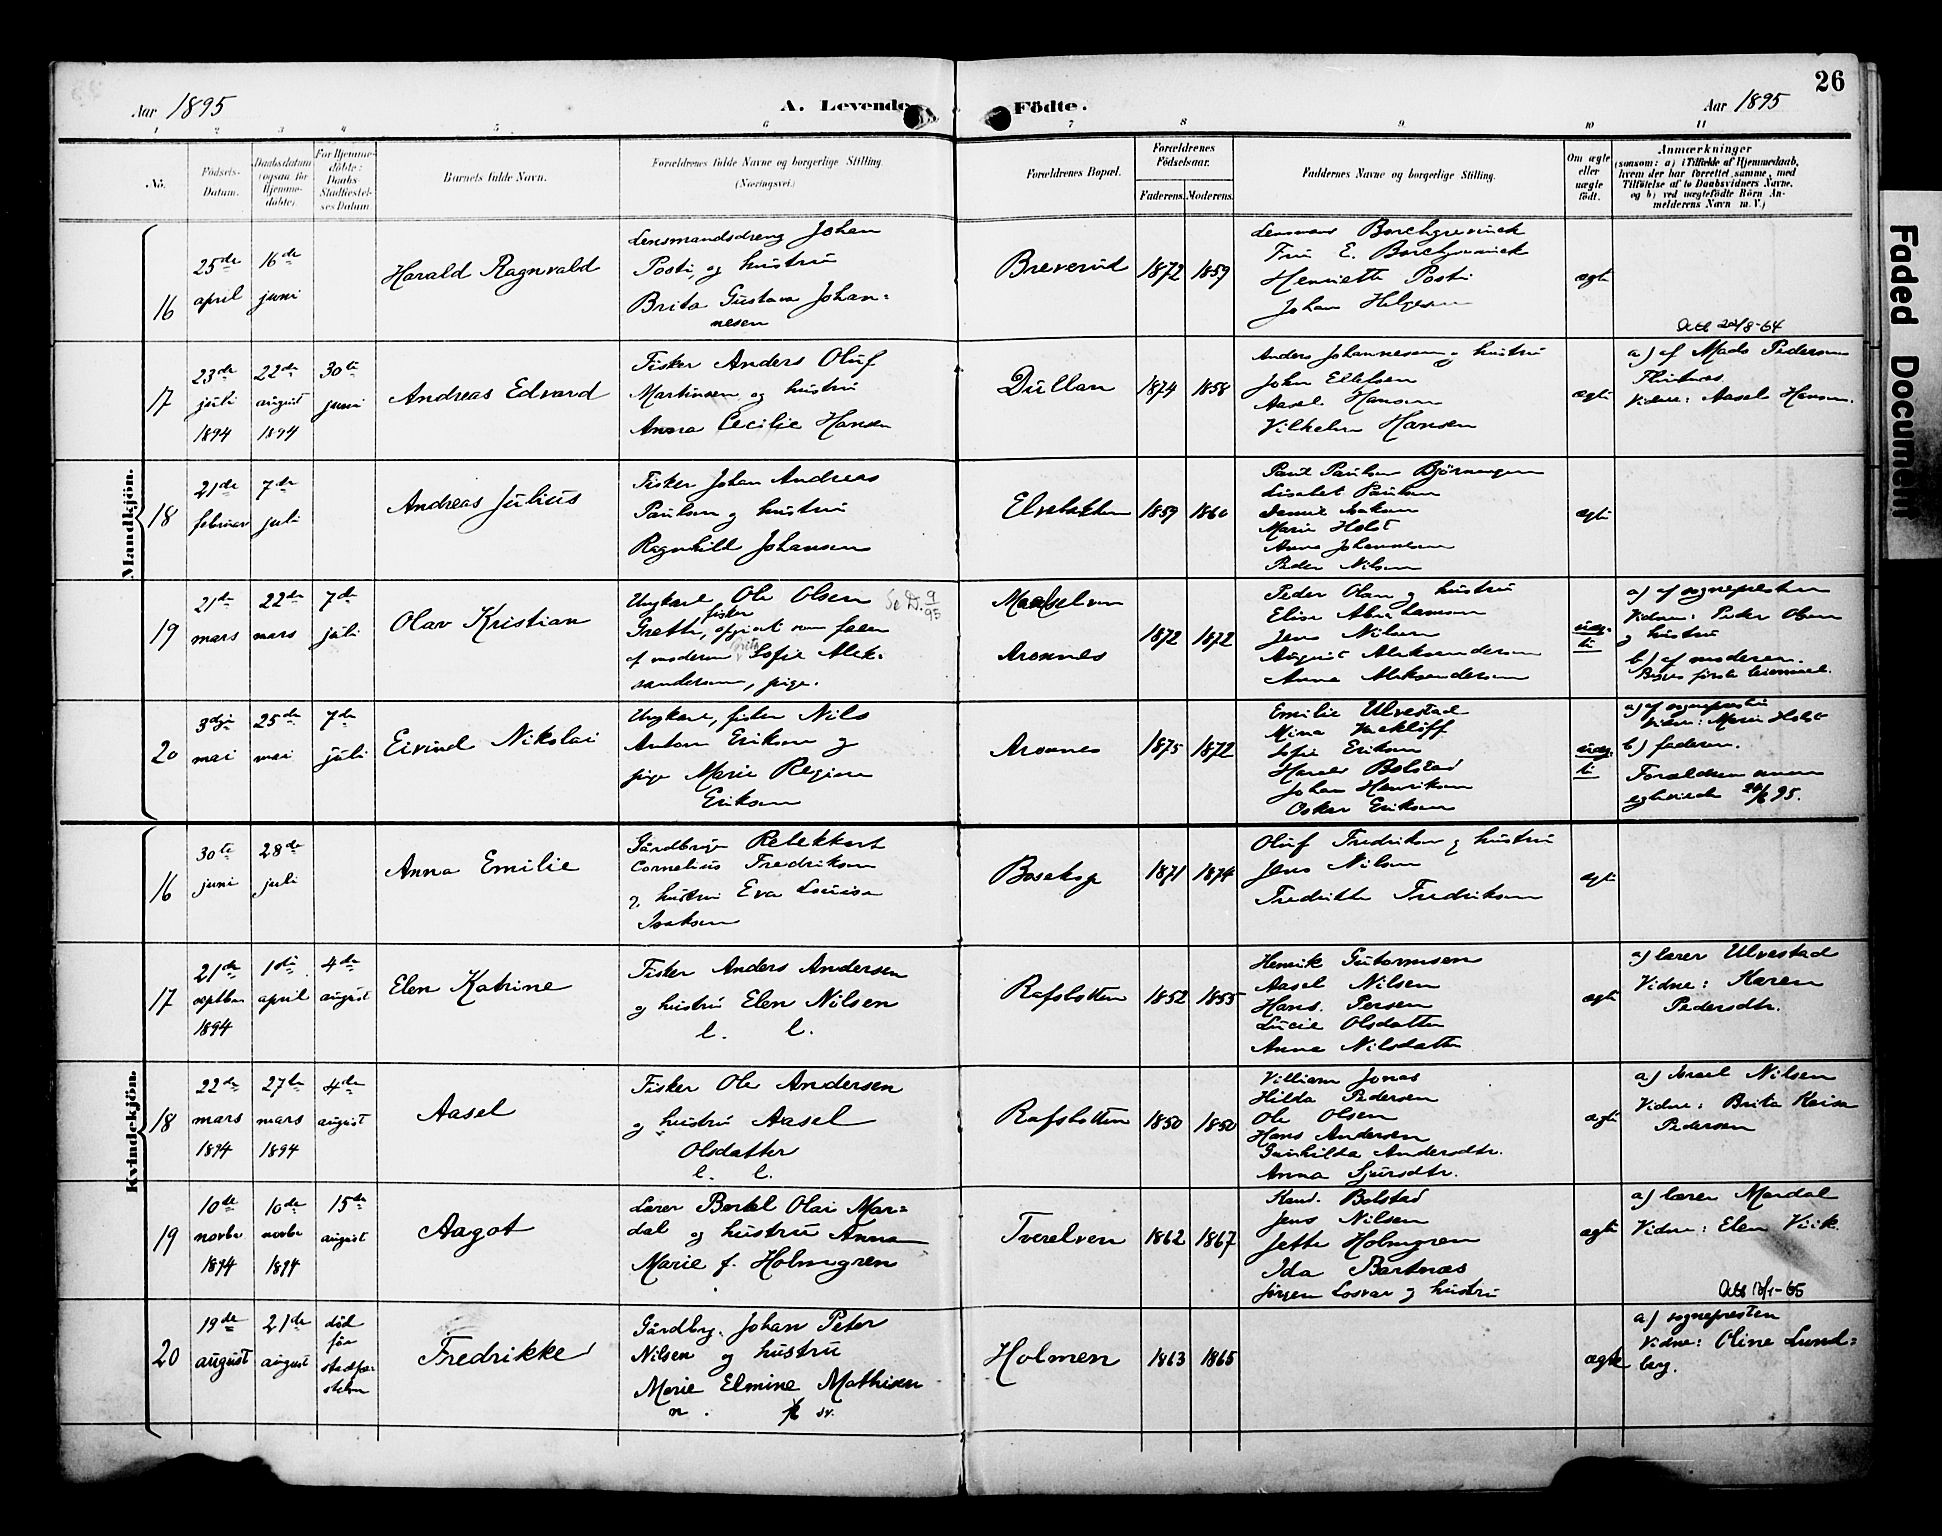 26
Aar 1895
A. Levende Födte.
Aar 1895
1 2 3 4 5 6 7 8 9 10 11
No.
Födsels-
Datum.
Daabsdatum
(ogsaa for
Hjemme-
döbte)
For Hjemme-
döbte:
Daabs-
Stadfæstel-
ses Datum
Barnets fulde Navn.
Forældrenes fulde Navne og borgerlige Stilling
(Næringsvei.)
Forældrenes Bopæl.
Forældrenes
Födselsaar.
Faderens.
Moderens.
Faddernes Navne og borgerlige Stilling.
Om ægte
eller
uægte
födt.
Anmærkninger
(saasom: a) i Tilfælde af Hjemmedaab,
hvem der har forrettet samme, med
Tilföielse af to Daabsvidners Navne,
og b) ved uægtefödte Börn An-
melderens Navn m. V.)
Mandkjön.
16
25de
april
16de
juni
Harald Ragnvald
Lensmandsdreng Johan
Posti, og hustru
Brita Gustava Johan-
nesen
Breverud
1872
1859
Lensmand Borchgrevinck
Fru E. Borchgrevinck
Henriette Posti
Johan Helgesen
ægte
17
23de
juli
1894
22de
august
1894
30te
juni
Andreas Edvard
Fisker Anders Oluf
Martinsen og hustru
Anna Cecilie Hansen
Dullan
1874
1858
Anders Johannesen og hustru
John Ellefsen
Aasel Hansen
Vilhelm Hansen
ægte
a) af Mads Pedersen
Vidne: Aasel Hansen.
18
21de
februar
7de
juli
Andreas Julius
Fisker Johan Andreas
Paulsen og hustru
Ragnhild Johansen
Elvebakken
1859
1860
Paul Paulsen
Lisabet Paulsen
Marie Holst
Anna Johannesen
Peder Nilsen
ægte
19
21de
mars
22de
mars
7de
juli
Olav Kristian
Ungkarl Ole Olsen
fisker
Grette, opgivet som fader
af moderen Sofie Alek-
sandersen, pige.
Se D. 9/95
Maalselven
Aronnes
1872
1872
Peder Olsen og hustru
Jens Nilsen
August Aleksandersen
Anna Aleksandersen
uæg-
te
a) af sognepresten
Vidne: Peder Olsen
og hustru
b) af moderen.
Begges første leiermaal.
20
3dje
mai
25de
mai
7de
juli
Eivind Nikolai
Ungkarl, fisker Nils
Anton Eriksen og
pige Marie Regine
Eriksen
Aronnes
1875
1872
Emilie Ulvestad
Mina
Sofie Eriksen
Harald Bolstad
Johan Henriksen
Oskar Eriksen
uæg-
te
a) af sognepresten
Vidne: Marie Holst
b) faderen.
Forældrene
95.
Kvindekjön.
16
30te
juni
28de
juli
Anna Emilie
Gårdbrug. Rebekkart
Cornelius Fredriksen
og hustru Eva Louisa
Isaksen
Bosekop
1871
1874
Oluf Fredriksen og hustru
Jens Nilsen
Fredrikke Fredriksen
ægte
17
21de
septbr
1894
1ste
april
4de
august
Elen Katrine
Fisker Anders Andersen
og hustru Elen Nilsen
l. l.
Rafsbotten
1852
1855
Henrik Guttormsen
Aasel Nilsen
Hans Persen
Lucie Olsdatter
Anne Nilsdatter
ægte
a) lærer Ulvestad
Vidne: Karen
Pedersdtr.
18
22de
mars
1894
27de
mars
1894
4de
august
Aasel
Fisker Ole Andersen
og hustru Aasel
Olsdatter
l. l.
Rafsbotten
1850
1850
Villiam Jonas
Hilda Pedersen
Ole Olsen
Hans Andersen
Gunhilda Andersdtr.
Anna Sjursdtr.
ægte
a) Israel Nilsen
Vidne: Brita Kaisa
Pedersen
19
10de
novbr
1894
10de
novbr
1894
15de
august
Aagot
Lærer Bertel Olai Mar-
dal og hustru Anna
Marie f. Holmgren
Tverelven
1862
1867
Kand. Bolstad
Jens Nilsen
Jette Holmgren
Ida Bartnæs
Jørgen Losvar og hustru
ægte
a) lærer Mardal
Vidne: Elen Viik
20
19de
august
21de
august
død
før
stadfæ-
stelsen
Fredrikke
Gårdbrg. Johan Peter
Nilsen og hustru
Marie Elmine Mathisen
n. sv.
Holmen
1863
1865
ægte
a) sognepresten
Vidne: Oline Lund-
berg.
Faded Document